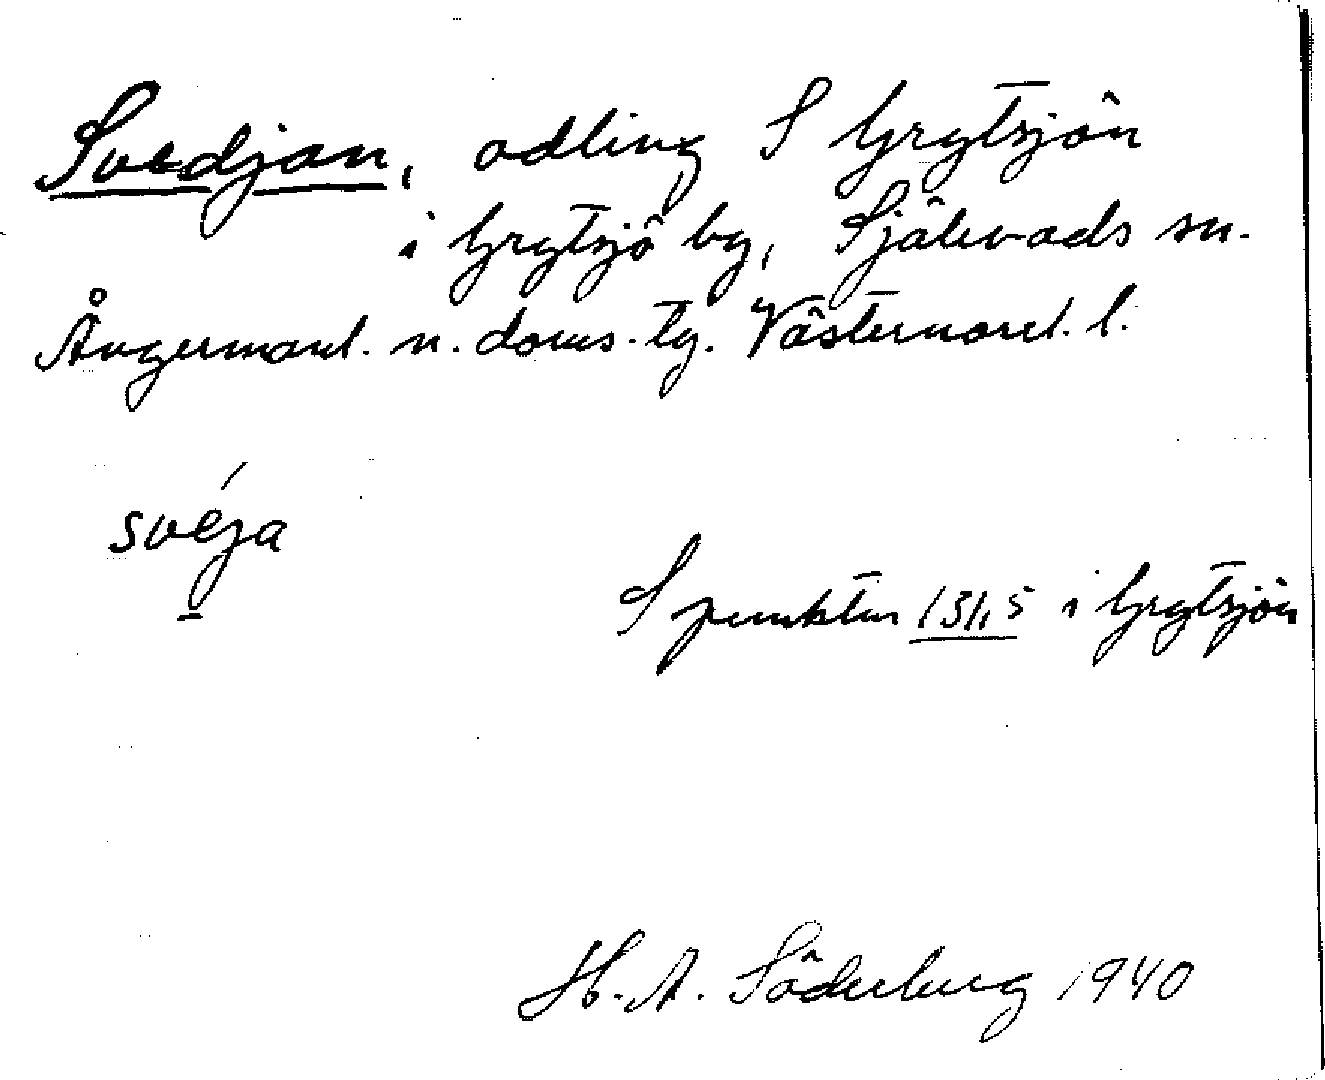 Svedjan, odling S Grytsjön
i Grytsjö by, Själevads sn.
Ångermanl. n. doms. lg. Västernorrl. l.
svéja
S punkten 131,5 i Grytsjön
H. A. Söderberg 1940